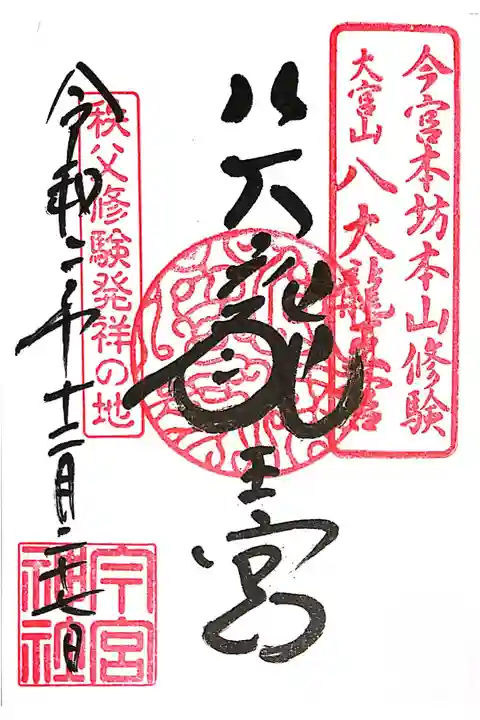 今宮本坊本山修験
大宮山八大龍王宮
八大龍王宮
秩父修験発祥の地
令和二年十二月二十七日
今宮神社